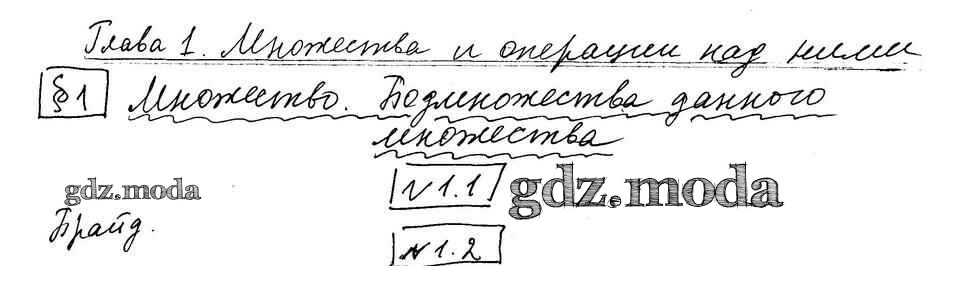 Глава 1. Множества и операции над ними
§1 Множество. Подмножества данного
множества
gdz.moda
№1.1
gdz.moda
Прайд.
№1.2